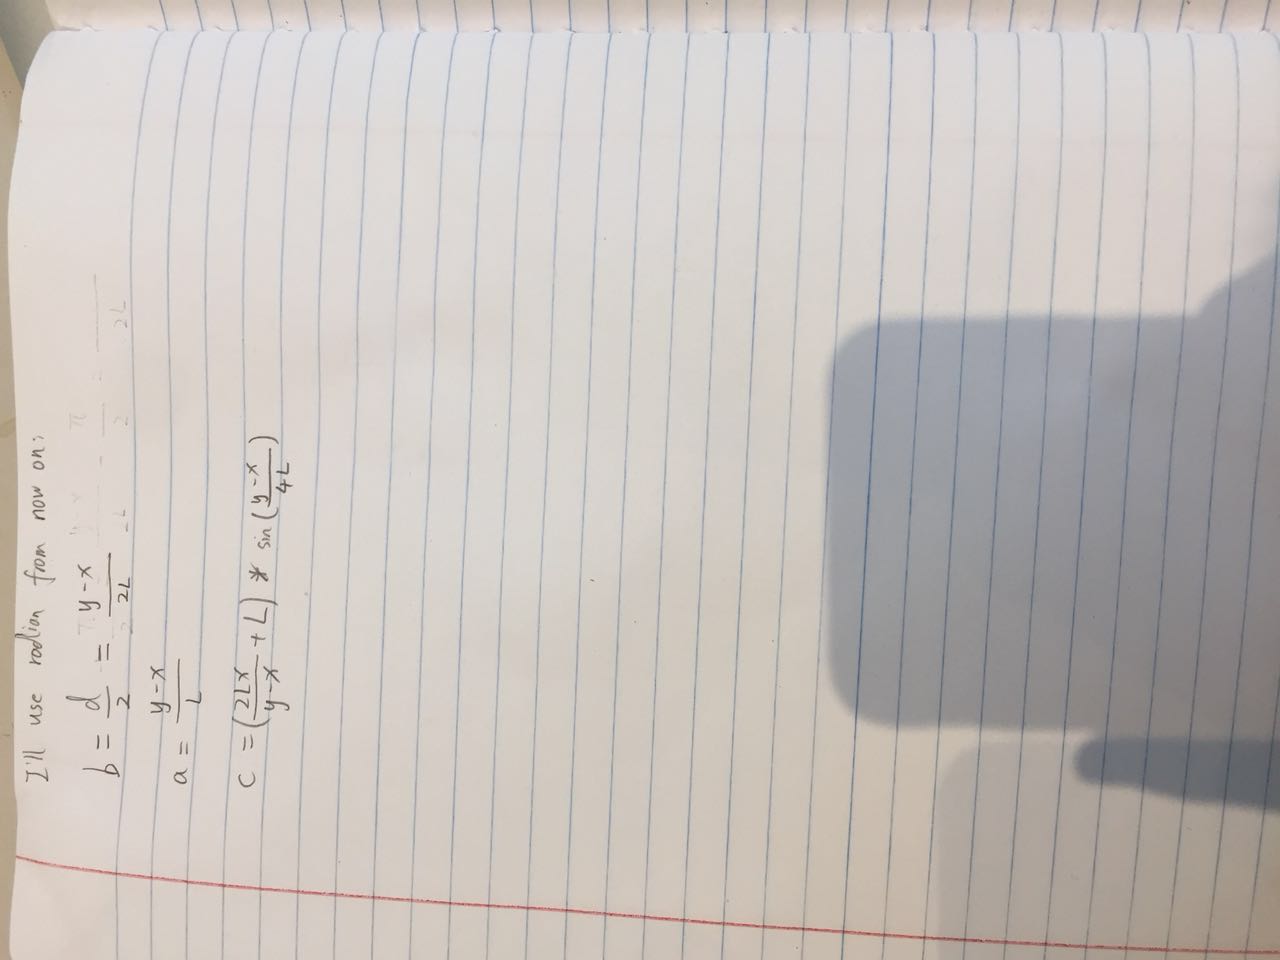 I'll use radian from now on:
b = d/2 = y-x/2L
a = y-x/L
c = (2Lx/y-x + L) * sin(y-x/4L)